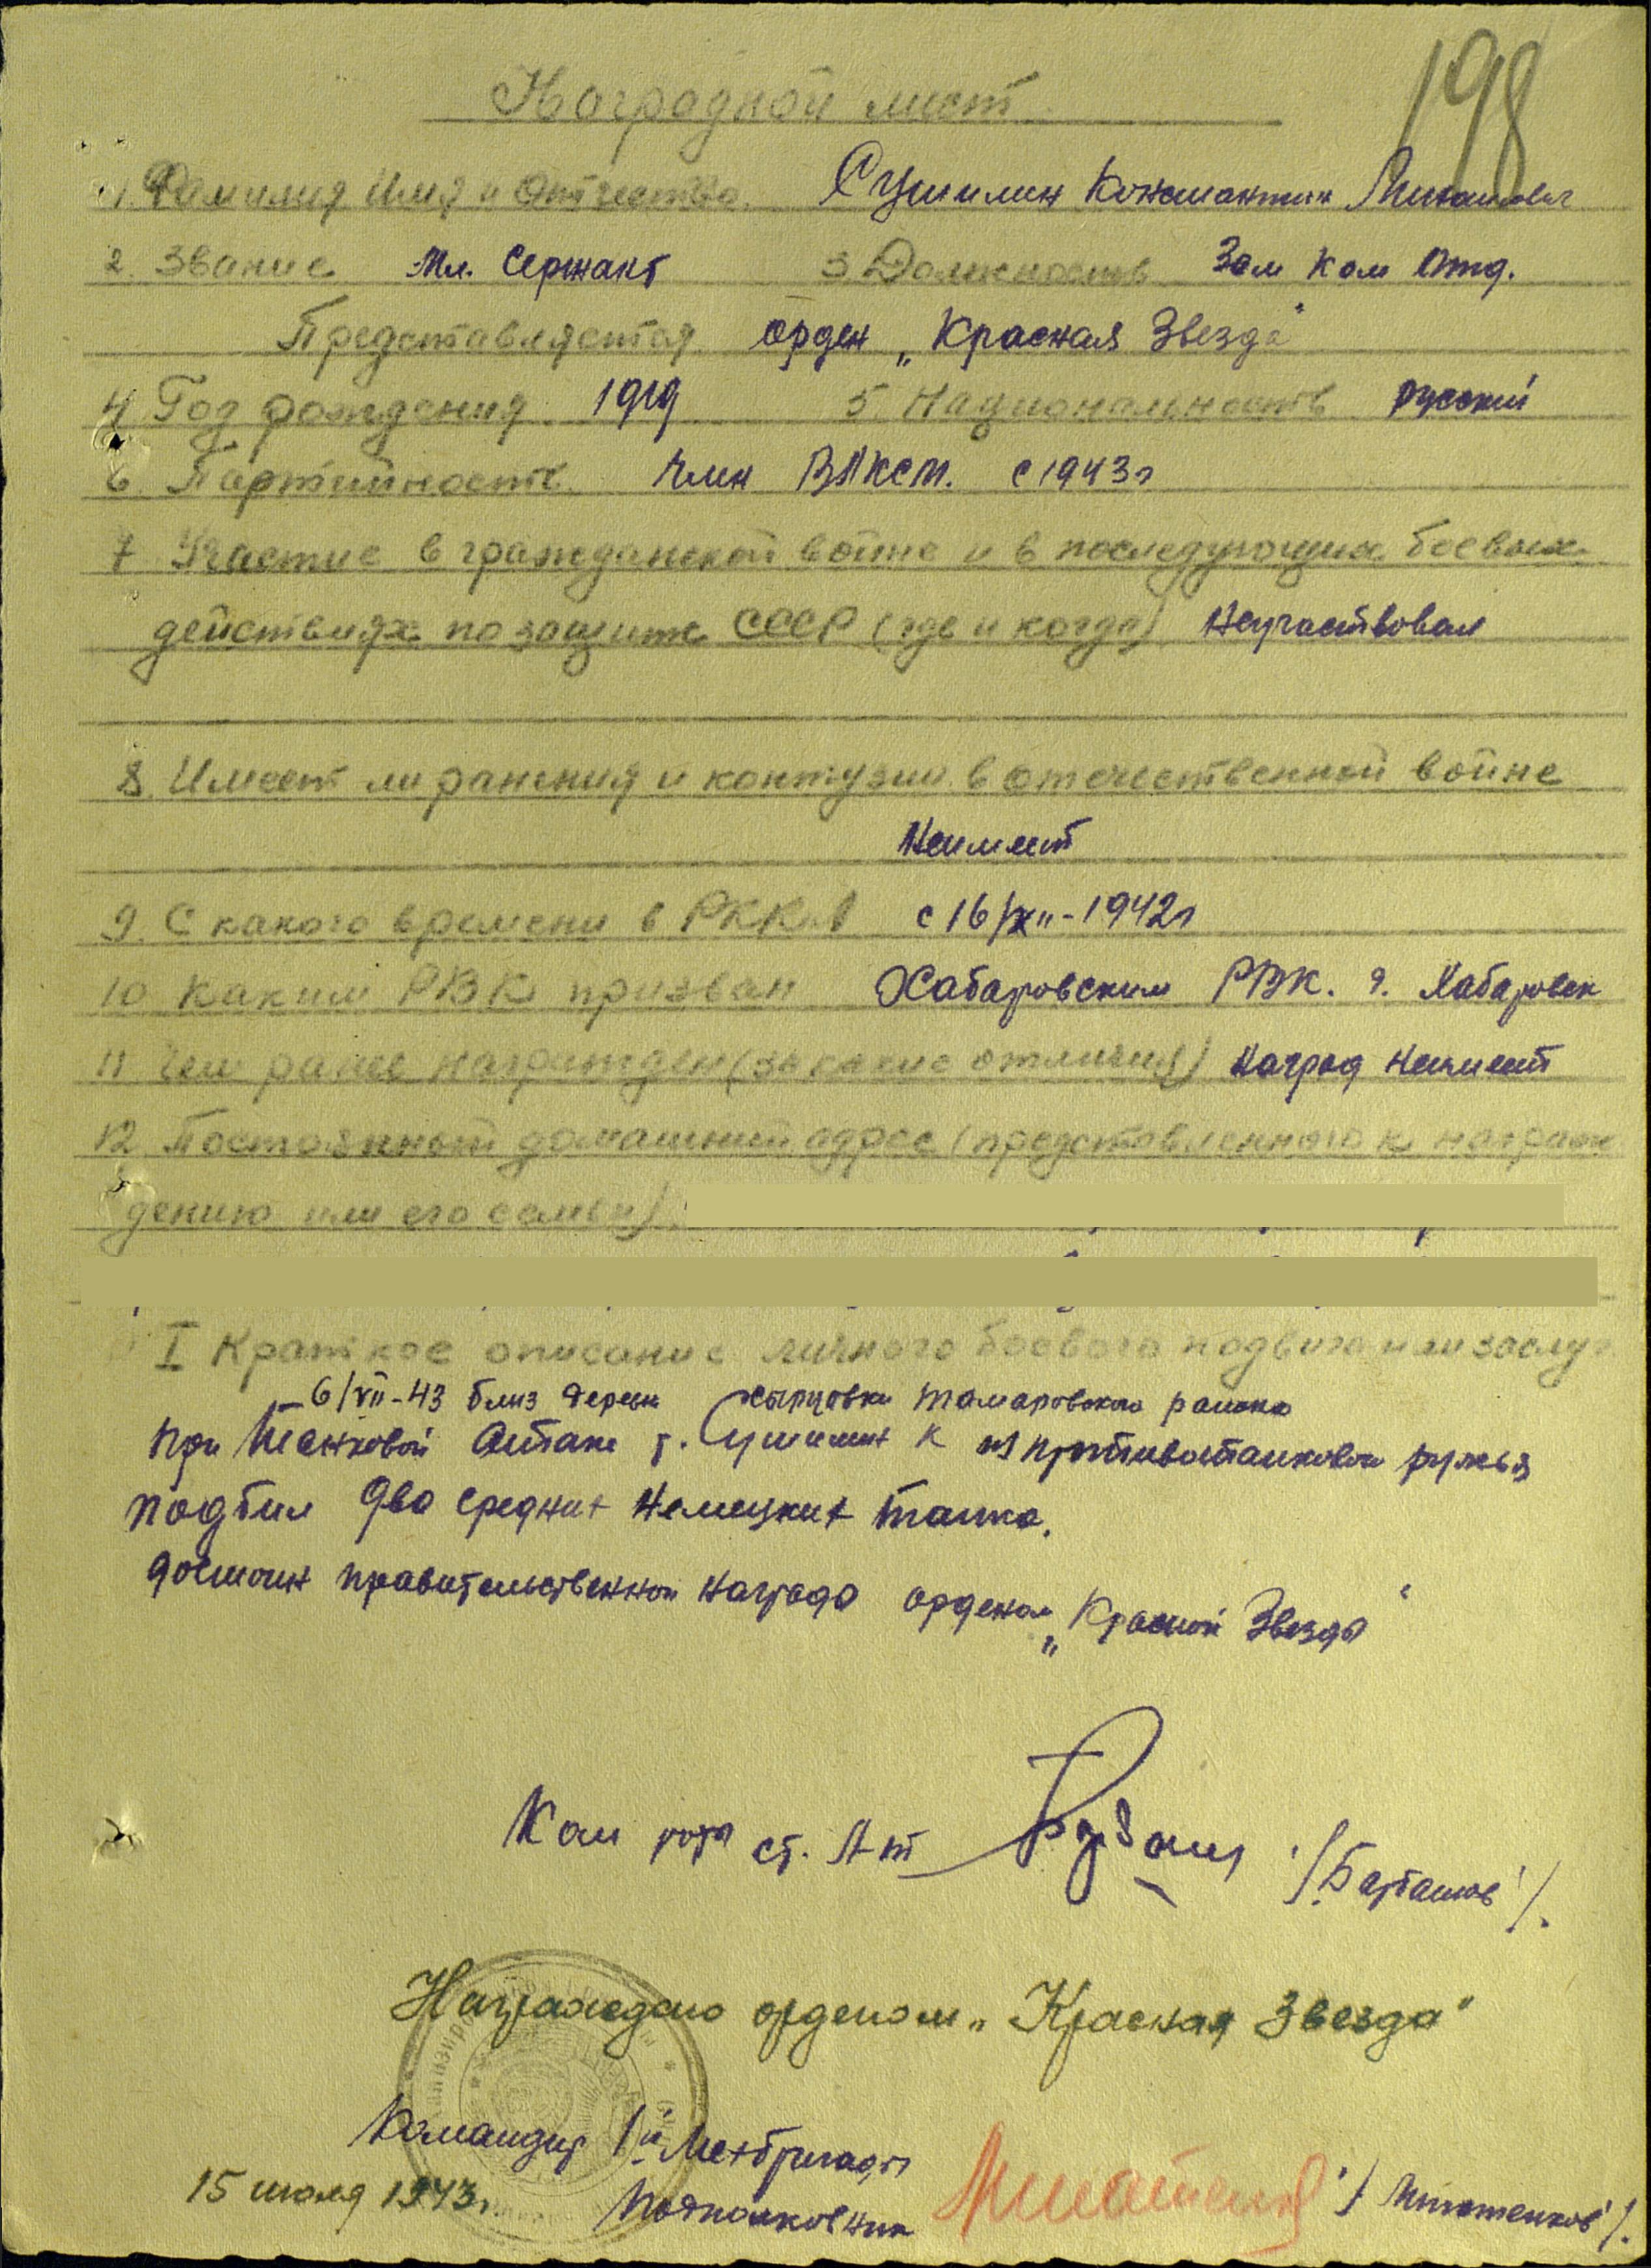 198
Наградной лист
1. Фамилия Имя и Отчество. Сушилин Константин
2. Звание Мл. Сержант 3. Должность Зам Ком Отд.
Представляется орден „Красная Звезда"
4 Год рождения 1919 5. Национальность русский
6 Партийность. Член ВЛКСМ. с 1943г
7 Участие в гражданской войне и в последующих боевых
действиях по защите СССР (где и когда) Неучаствовал
8. Имеет ли ранения и контузии в отечественной войне
Неимеет
9. С какого времени в РККА с 16/XII-1942г
10 Каким РВК призван Хабаровским РВК. г. Хабаровск
11 Чем ранее награжден (за какие отличия) Наград Неимеет
12. Постоянный домашний адрес (представленного к награж
дению или его семьи).
I Краткое описание личного боевого подвига или заслуг
6/VII-43 близ Деревни Томаровского района
При Танковой Атаке т. Сушилин К из противотанковова ружья
подбил два средних немецких танка.
Достоин правительственной награда орденом „Красной Звезды"
Ком роты ст. Л-т /Барташов/.
Награждаю орденом „Красная Звезда"
Командир 1й Мехбригады
15 июля 1943г. Подполковник